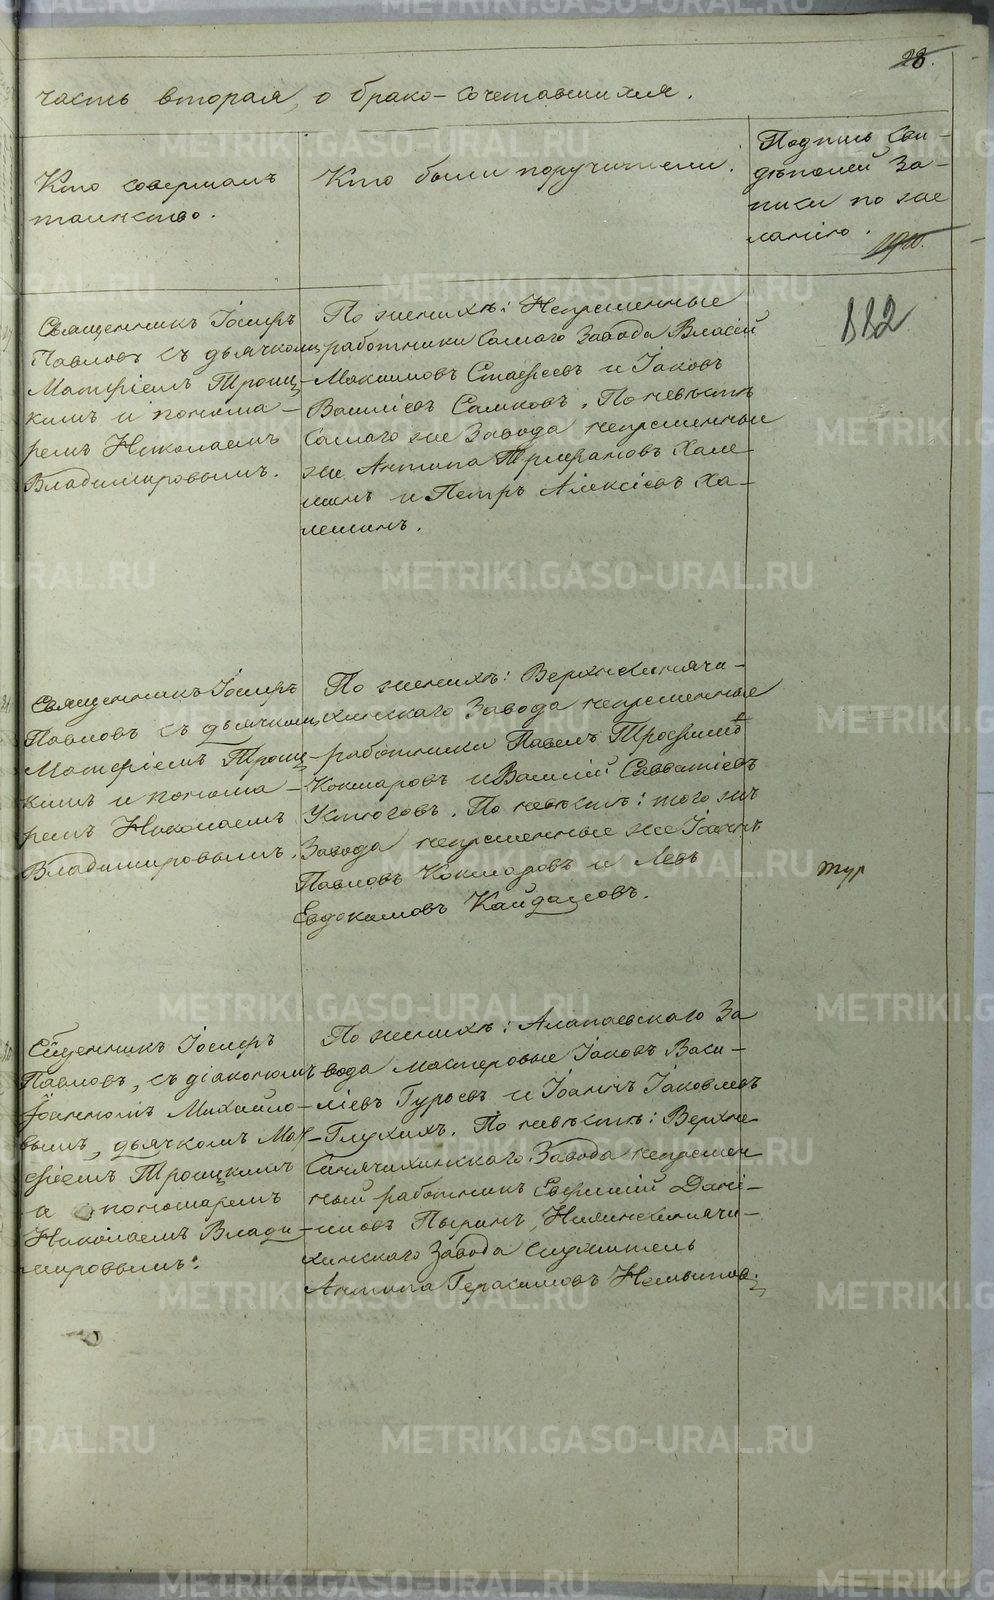 28.
часть вторая, о брако-сочетавшихся.
Кто совершалъ
таинство.
Кто были поручители.
Подпись сви-
дѣтелей за-
писи по же
ланію.
112
Священникъ Іосифъ
Павловъ съ дьячкомъ
Матѳіемъ Троиц-
кимъ и понома-
ремъ Николаемъ
Владимировымъ.
По женихѣ: Непременные
работники сашаго Завода Власій
Максимовъ и Іаковъ
Василіевъ Самковъ. По невѣстѣ
сашаго же Завода непременные
же Антипа Трифановъ Хале
минъ и Петръ Алексіевъ Ха-
леминъ.
Священникъ Іосифъ
Павловъ съ дьячкомъ
Матѳіемъ Троиц-
кимъ и понома-
ремъ Николаемъ
Владимировымъ.
По женихѣ: Верхнесинячи-
хинскаго Завода непременные
работники Павелъ
Кокшаровъ и Василій Савватіевъ
Устюговъ. По невѣстѣ: того жъ
Завода непременные же Іоаннъ
Павловъ Кокшаровъ и Левъ
Евдокимовъ Кайдаловъ.
тур
Сщенникъ Іосифъ
Павловъ, съ діакономъ
Іоанномъ Михайло-
вымъ, дьячкомъ Мат-
ѳіемъ Троицкимъ
и пономаремъ
Николаемъ Влади-
мировымъ.
По женихѣ: Алапаевскаго За
вода мастеровые Іаковъ Васи-
ліевъ Гурьевъ и Іоаннъ Іаковлевъ
Глухихъ. По невѣстѣ: Верхне
синячихинскаго Завода непремен
ный работникъ Евгений Дані-
ловъ Пыринъ, Нижнесинячи-
хинскаго Завода служитель
Антипа Герасимовъ
METRIKI.GASO-URAL.RU